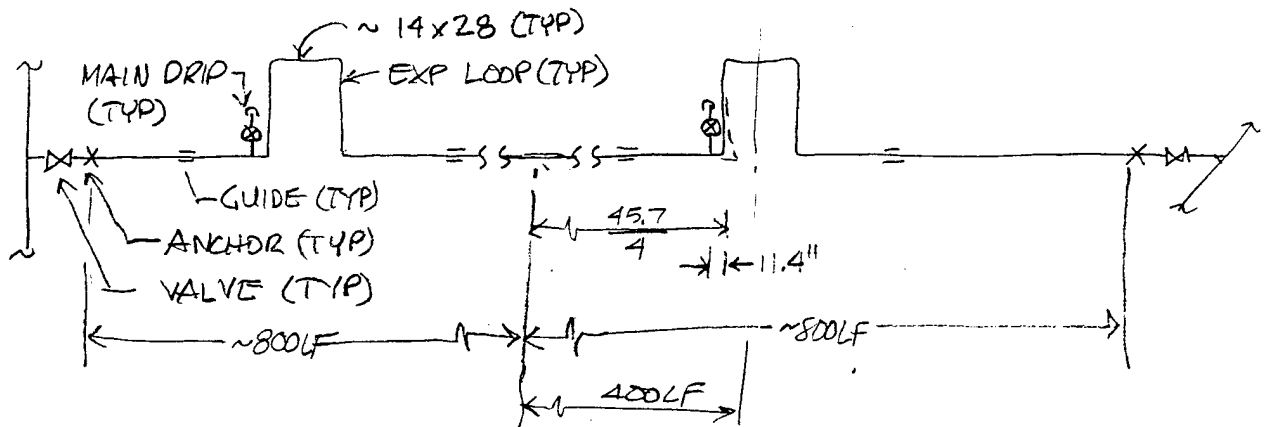 ~ 14x28 (TYP)
MAIN DRIP
(TYP)
EXP LOOP (TYP)
GUIDE (TYP)
ANCHOR (TYP)
VALVE (TYP)
45.7
4
11.4"
~800LF
~800LF
400LF